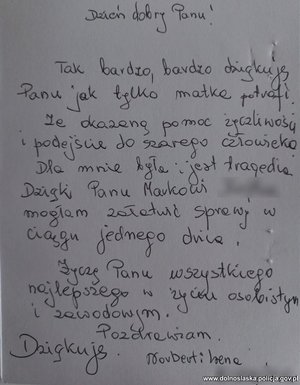 Dzień dobry Panu!
Tak bardzo, bardzo dziękuję
Panu jak tylko matka potrafi.
Ze okazaną pomoc życzliwość
i podejście do szarego człowieka
Dla mnie była i jest tragedia
Dzięki Panu Markowi
mogłam załatwić sprawę w
ciągu jednego dnia.
Życzę Panu wszystkiego
najlepszego w życiu osobistym
i zawodowym.
Pozdrawiam.
Dziękuję. Norbert i Irena
www.dolnoslaska.policja.gov.pl